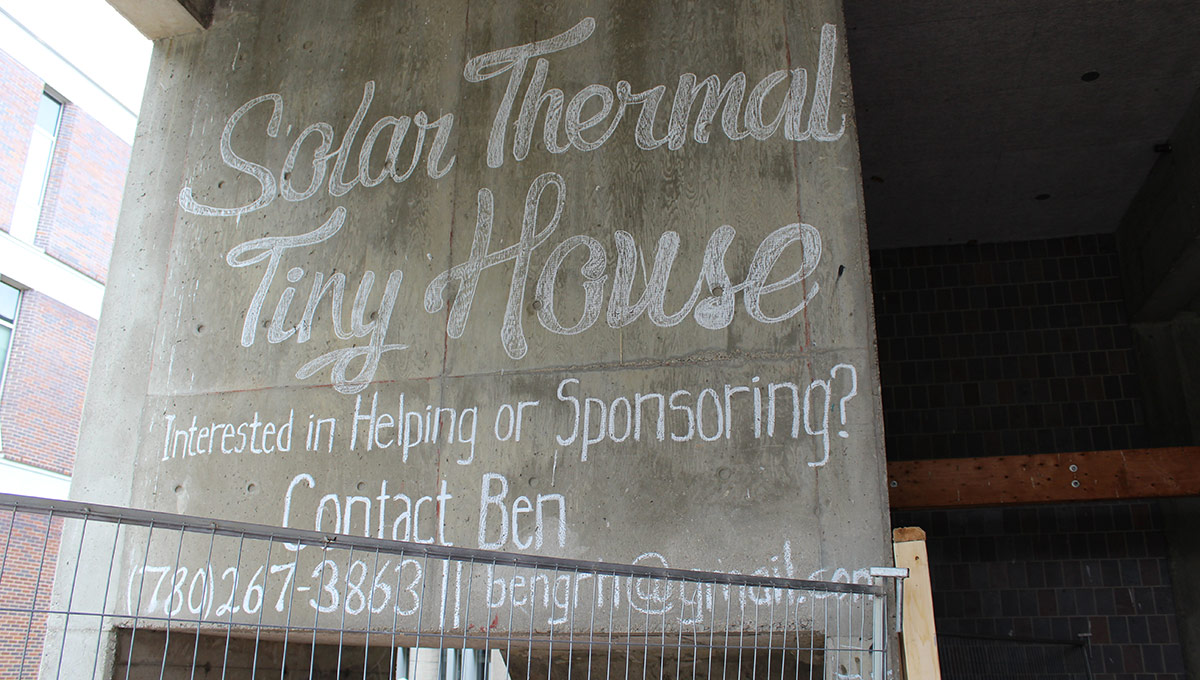 Solar Thermal
Tiny House
Interested in Helping or Sponsoring?
Contact Ben
(780)267-3863 ||